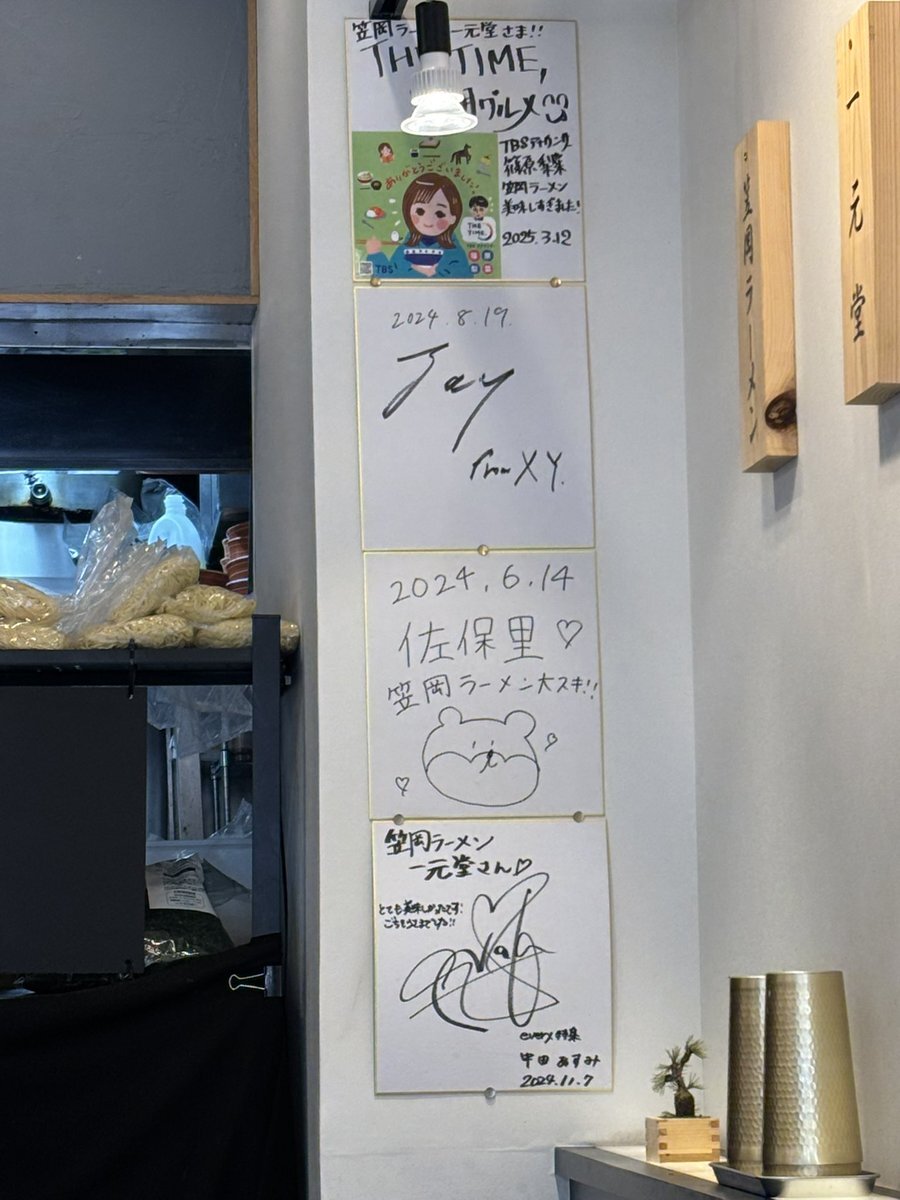 笠岡ラー 一元堂さま!!
THE TIME,
グルメ
TBSアナウンサー
篠原梨菜
笠岡ラーメン
美味しすぎました!
2025.3.12
ありがとうございました!
THE
TIME,
TBS
2024.8.19.
Jay
From X Y.
2024.6.14
佐保里♡
笠岡ラーメン大スキ!!
笠岡ラーメン
一元堂さん♡
とても美味しかったです!
ごちそうさまでした!!
every.特集
中田 あすみ
2024.11.7
笠岡ラーメン
一元堂